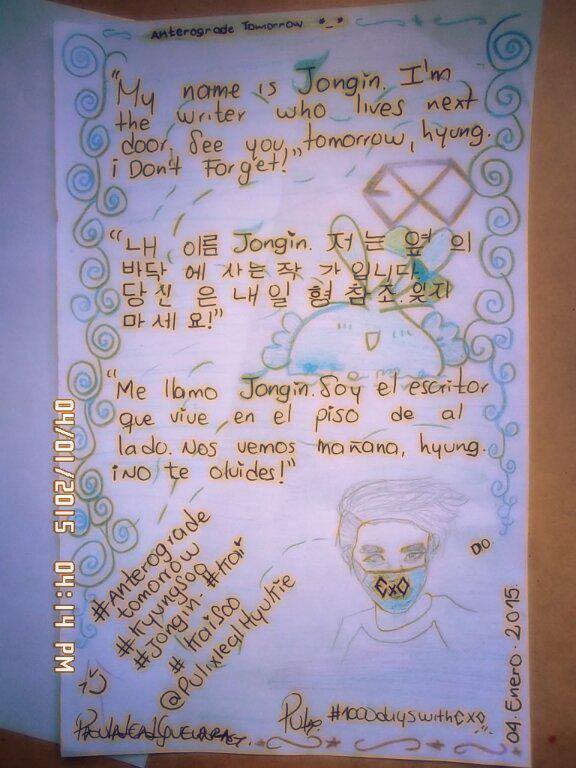 Anterograde Tomorrow *_*
"My name is Jongin. I'm
the writer who lives next
door, See you tomorrow, hyung.
¡Don't Forget!"
"내 이름 Jongin. 저 는 옆 의
바닥 에 사는 작 가 입니다.
당신 은 내일 형 참조. 잊지
마세요!"
"Me llamo Jongin. Soy el escritor
que vive en el piso de al
lado. Nos vemos mañana, hyung.
¡NO te olvides!"
#Anterograde
tomorrow
#Kyungsoo
#Jongin. #Kai
#Kaisoo
@PulixlealHyukie
EXO
DO
04. Enero. 2015.
#1000dayswithEXO
04/01/2015 04:14 PM